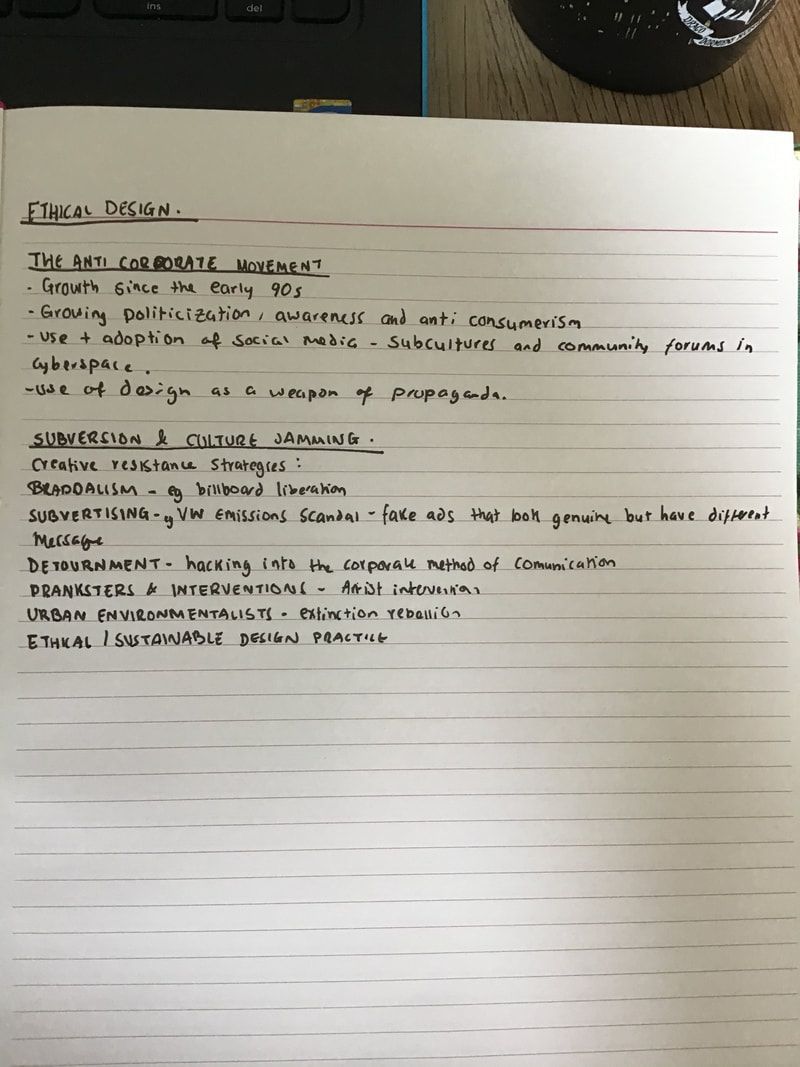 ins
del
ETHICAL DESIGN.
THE ANTI CORPORATE MOVEMENT
- Growth since the early 90s
- Growing politicization, awareness and anti consumerism
- use + adoption of social media - subcultures and community forums in
cyberspace.
- use of design as a weapon of propaganda.
SUBVERSION & CULTURE JAMMING.
Creative resistance strategies:
BRANDALISM - eg billboard liberation
SUBVERTISING - eg VW Emissions Scandal - fake ads that look genuine but have different
message
DETOURNMENT - hacking into the corporate method of comunication
PRANKSTERS & INTERVENTIONS - Artist interventions
URBAN ENVIRONMENTALISTS - extinction rebellion
ETHICAL / SUSTAINABLE DESIGN PRACTICE